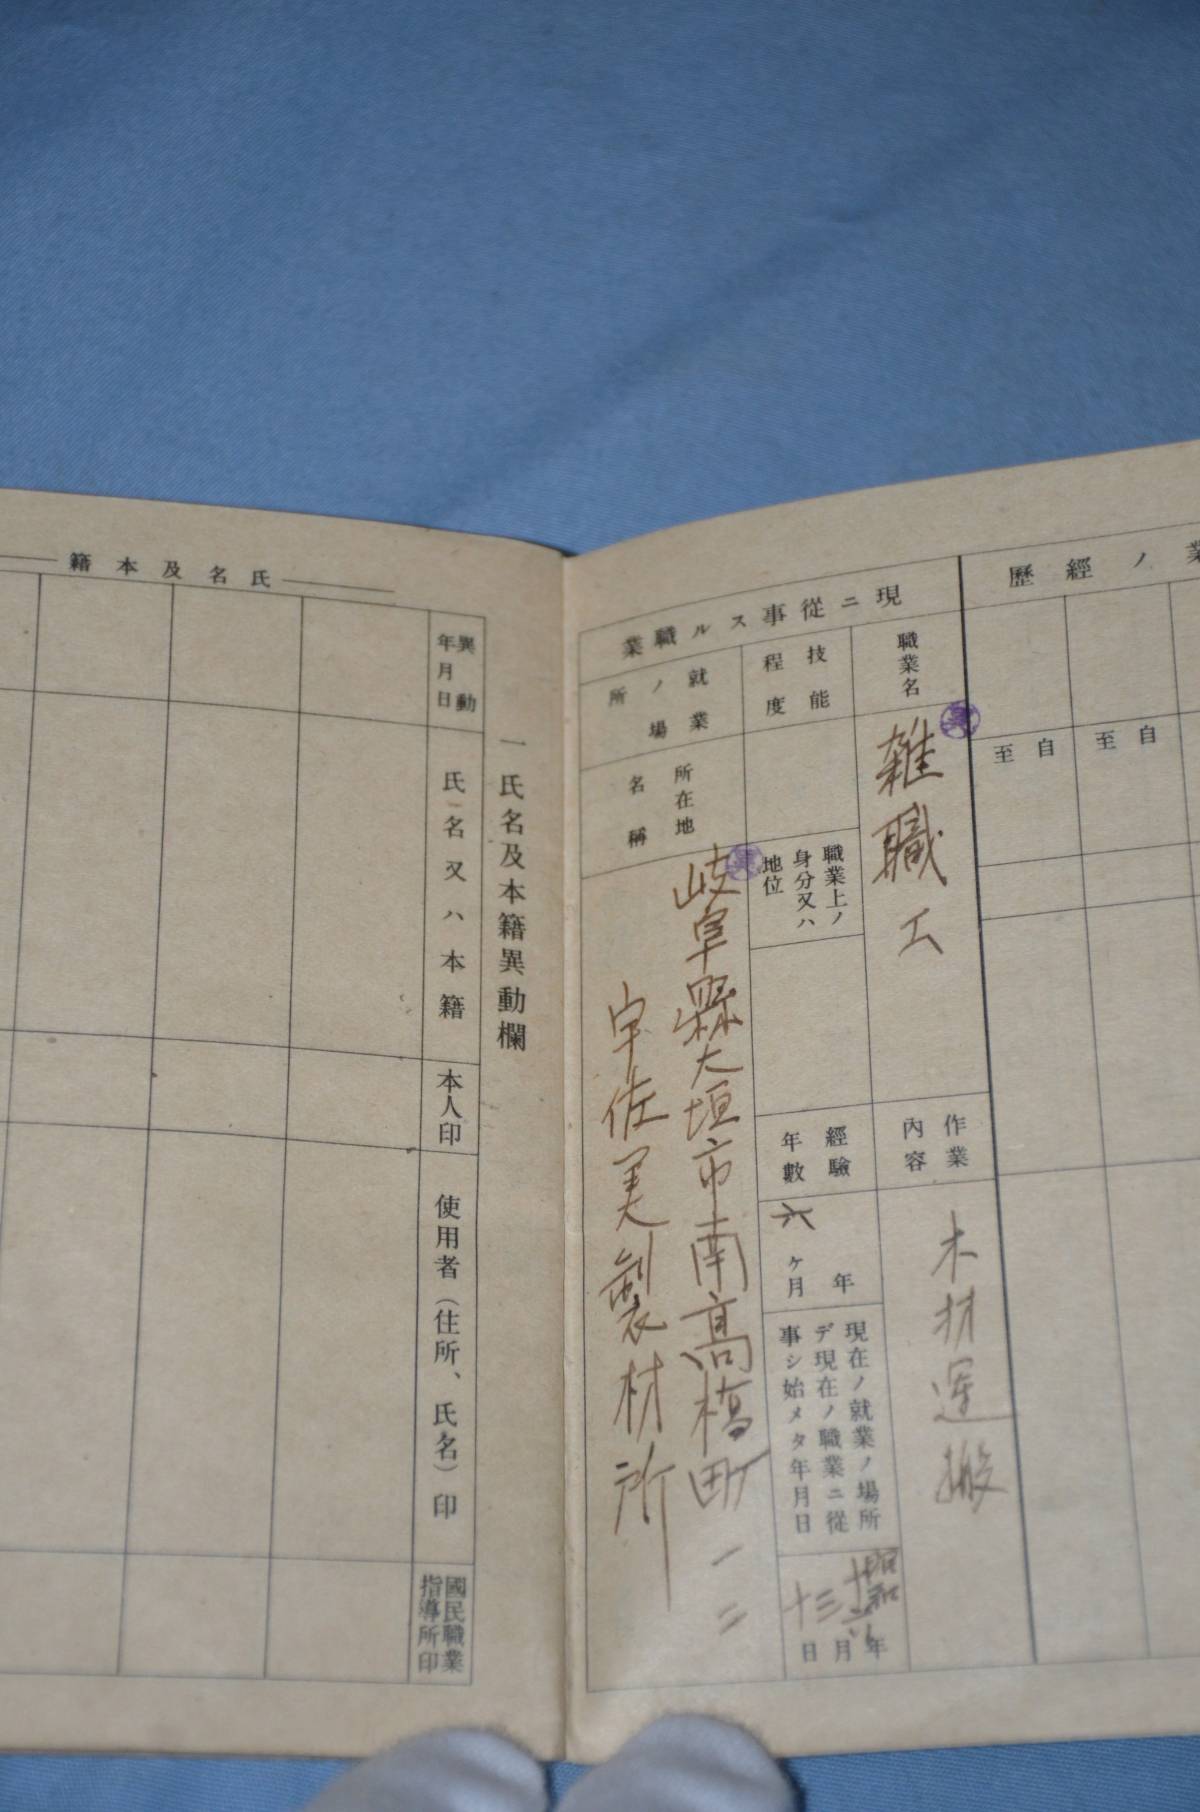 業ノ經歷
自
至
自
至
現ニ從事スル職業
職業名
雑職工
作業內容
木材運搬
技能程度
職業上ノ身分又ハ地位
經驗年數
年
六ヶ月
現在ノ就業ノ場所デ現在ノ職業ニ從事シ始メタ年月日
昭和
年
三月
十日
就業ノ場所
所在地
名稱
岐阜縣大垣市南高橋町一二
宇佐美製材所
一氏名及本籍異動欄
氏名及本籍
異動年月日
氏名又ハ本籍
本人印
使用者(住所、氏名)印
國民職業指導所印